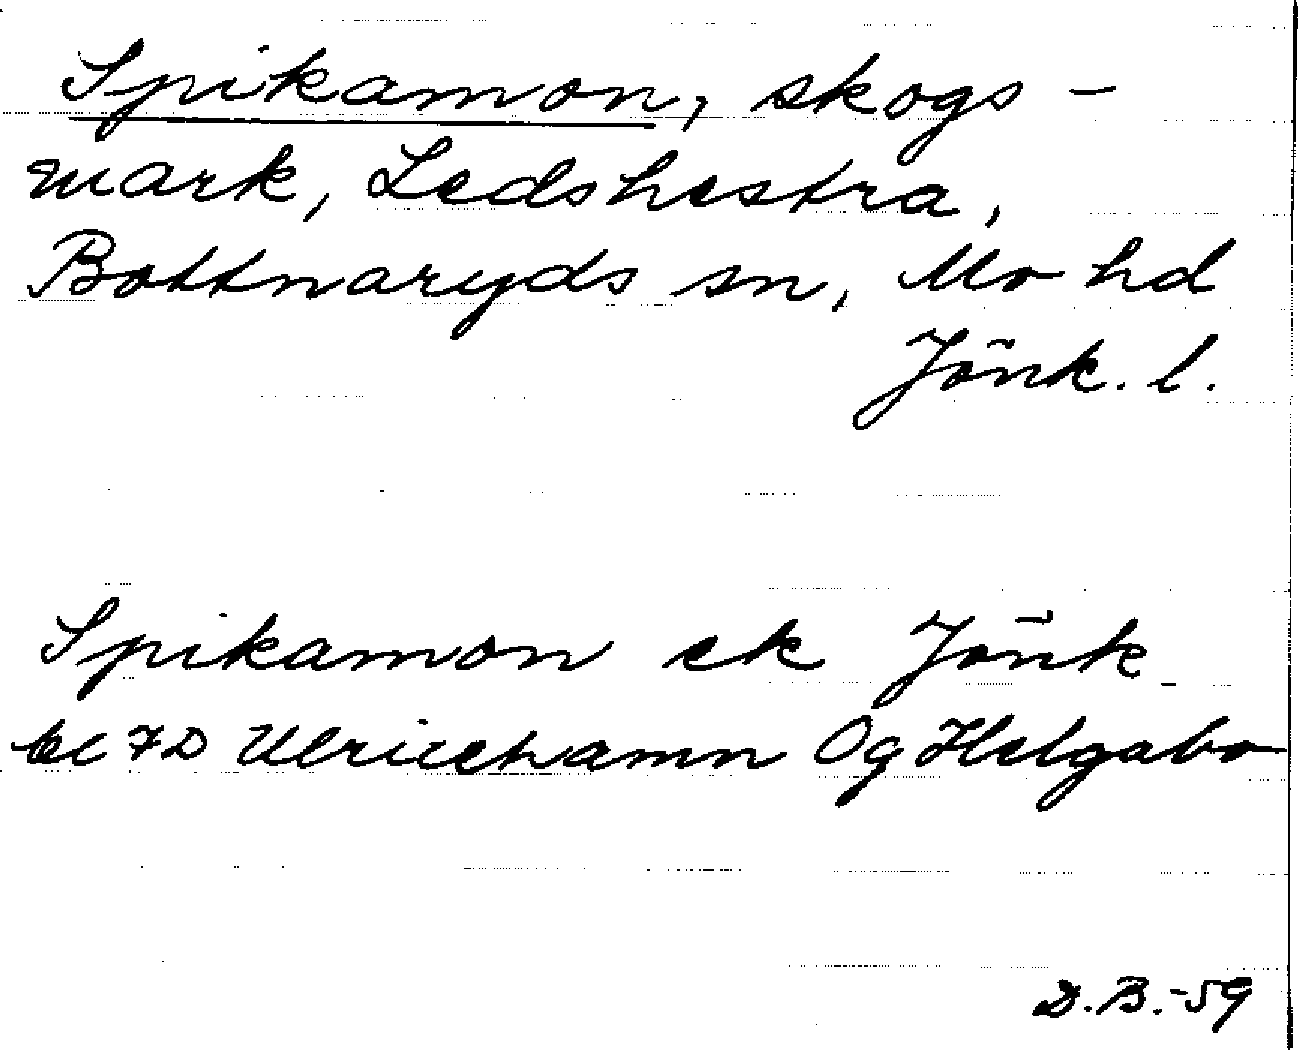 Spikamon, skogs-
mark, Ledshestra,
Bottnaryds sn, Mo hd
Jönk. l.
Spikamon ek Jönk
bl 7D Ulricehamn Og Helgabo
D.B.-59